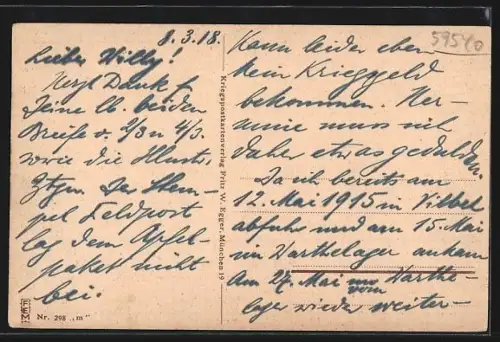 8.3.18.
Lieber Willy!
Herzl. Dank f.
Deine lb. beiden
Briefe v. 2/3 u 4/3.
sowie die Illustr.
Ztgn. Der Stem-
pel Feldpost
lag dem Apfel-
paket nicht
bei.
Nr. 298 „m"
Kriegspostkartenverlag Fritz W. Egger, München 19
59540
Kann leider eben
kein Krieggeld
bekommen. Her-
mine muss sich
daher etwas gedulden.
Da ich bereits am
12. Mai 1915 in Vilbel
abfuhr und am 15. Mai
im Warthelager ankam
Am 27. Mai vom Warthe-
lager wieder weiter-